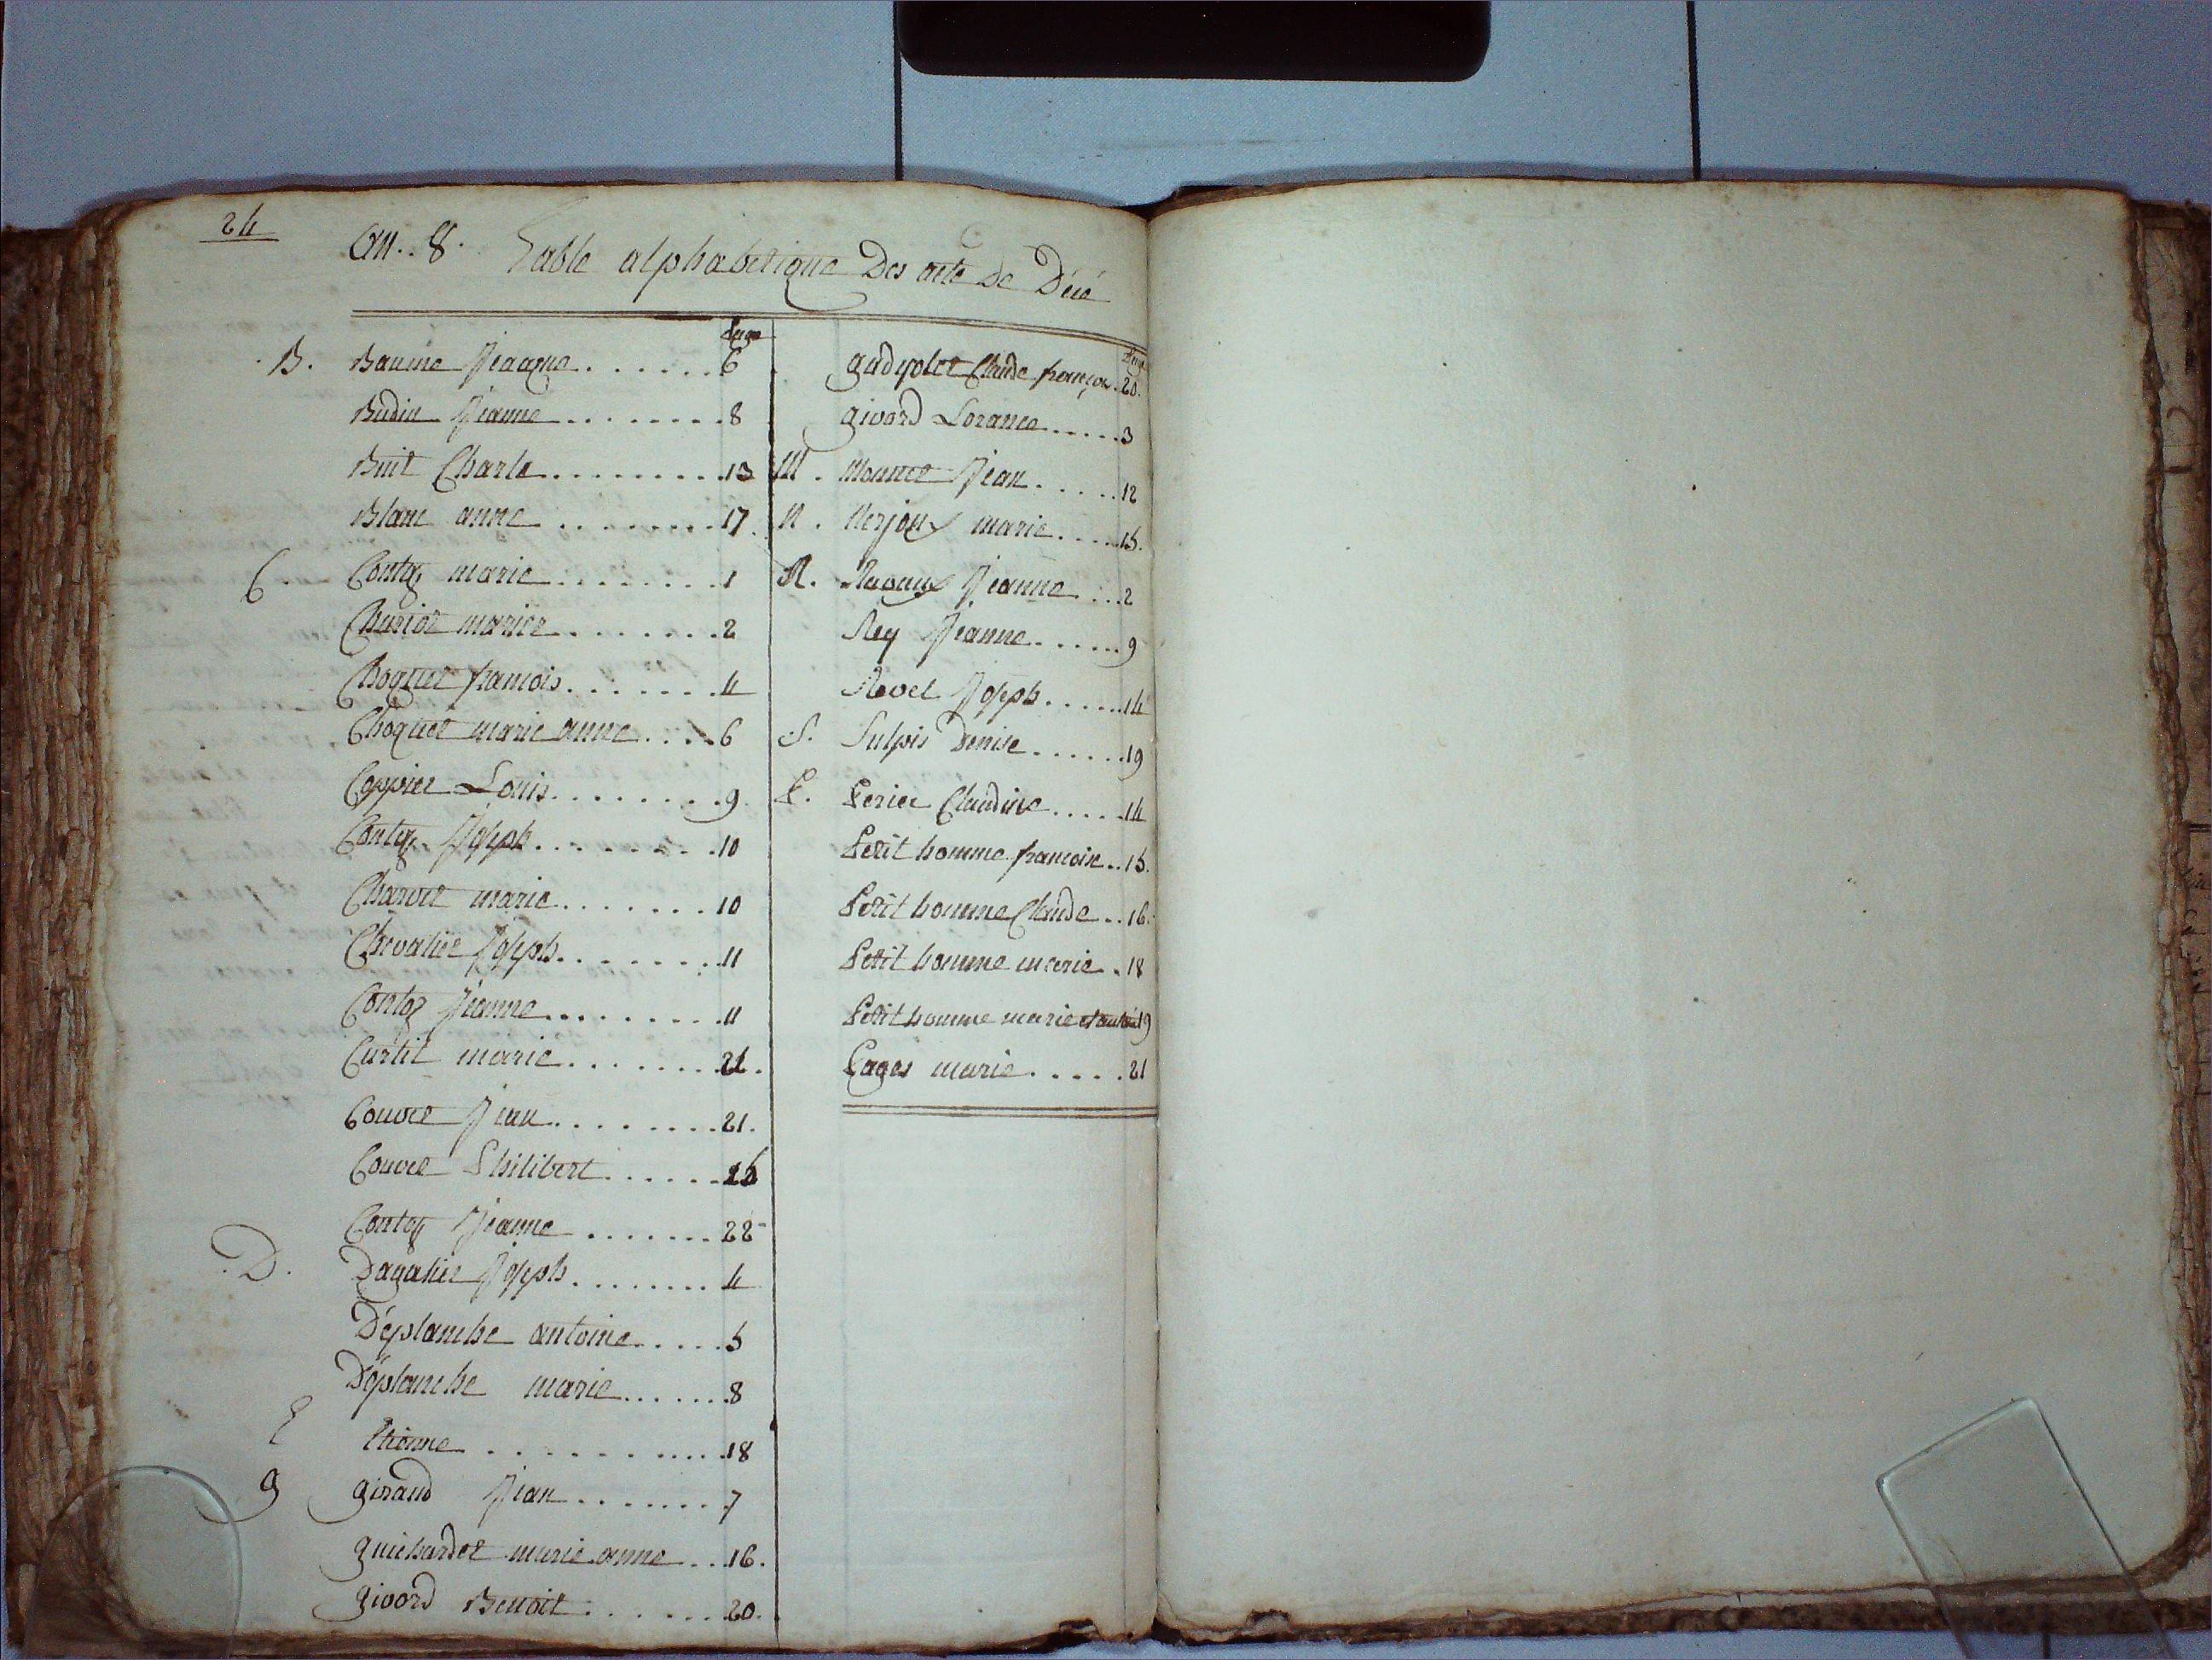 24
an.. 8. Table alphabetique Des acte De Décé
page
B. Baume Jeanne ...... 6
Budin Jeanne ........ 8
Buit Charle ......... 13
Blanc anne ........ 17.
C. Contoz marie ........ 1
Churiot mariee ....... 2
Choquet francois ....... 4
Choquet marie anne .... 6
Coppier Louis ........ 9.
Contoz Joseph ........ 10
Charvet marie ....... 10
Chevalier Joseph ....... 11
Contoz Jeanne ........ 11
Curtil marie ....... 21.
Couvet Jean ........ 21.
Couvet Philibert ......
Contoz Jeanne ....... 22
.D. Dagalier Joseph ........ 4
Déplanche antoine ..... 5
Déplanche marie ...... 8
E Etienne ........... 18
g giraud Jean ....... 7
guichardet marie anne .. 16.
givord Benoit ....... 20.
page
gadyolet Claude françois. 20.
givord Lorance ..... 3
M. Monnet Jean ..... 12
N. Nerjoux marie .... 15.
R. Ravaux Jeanne ... 2
Rey Jeanne ...... 9
Revel Joseph ...... 14
S. Sulpis Denise ...... 19
P. Perier Claudine ..... 14
Petit homme francoise .. 15.
Petit homme Claude .. 16.
Petit homme marie . 18
Petit homme marie 19
Pages marie ..... 21